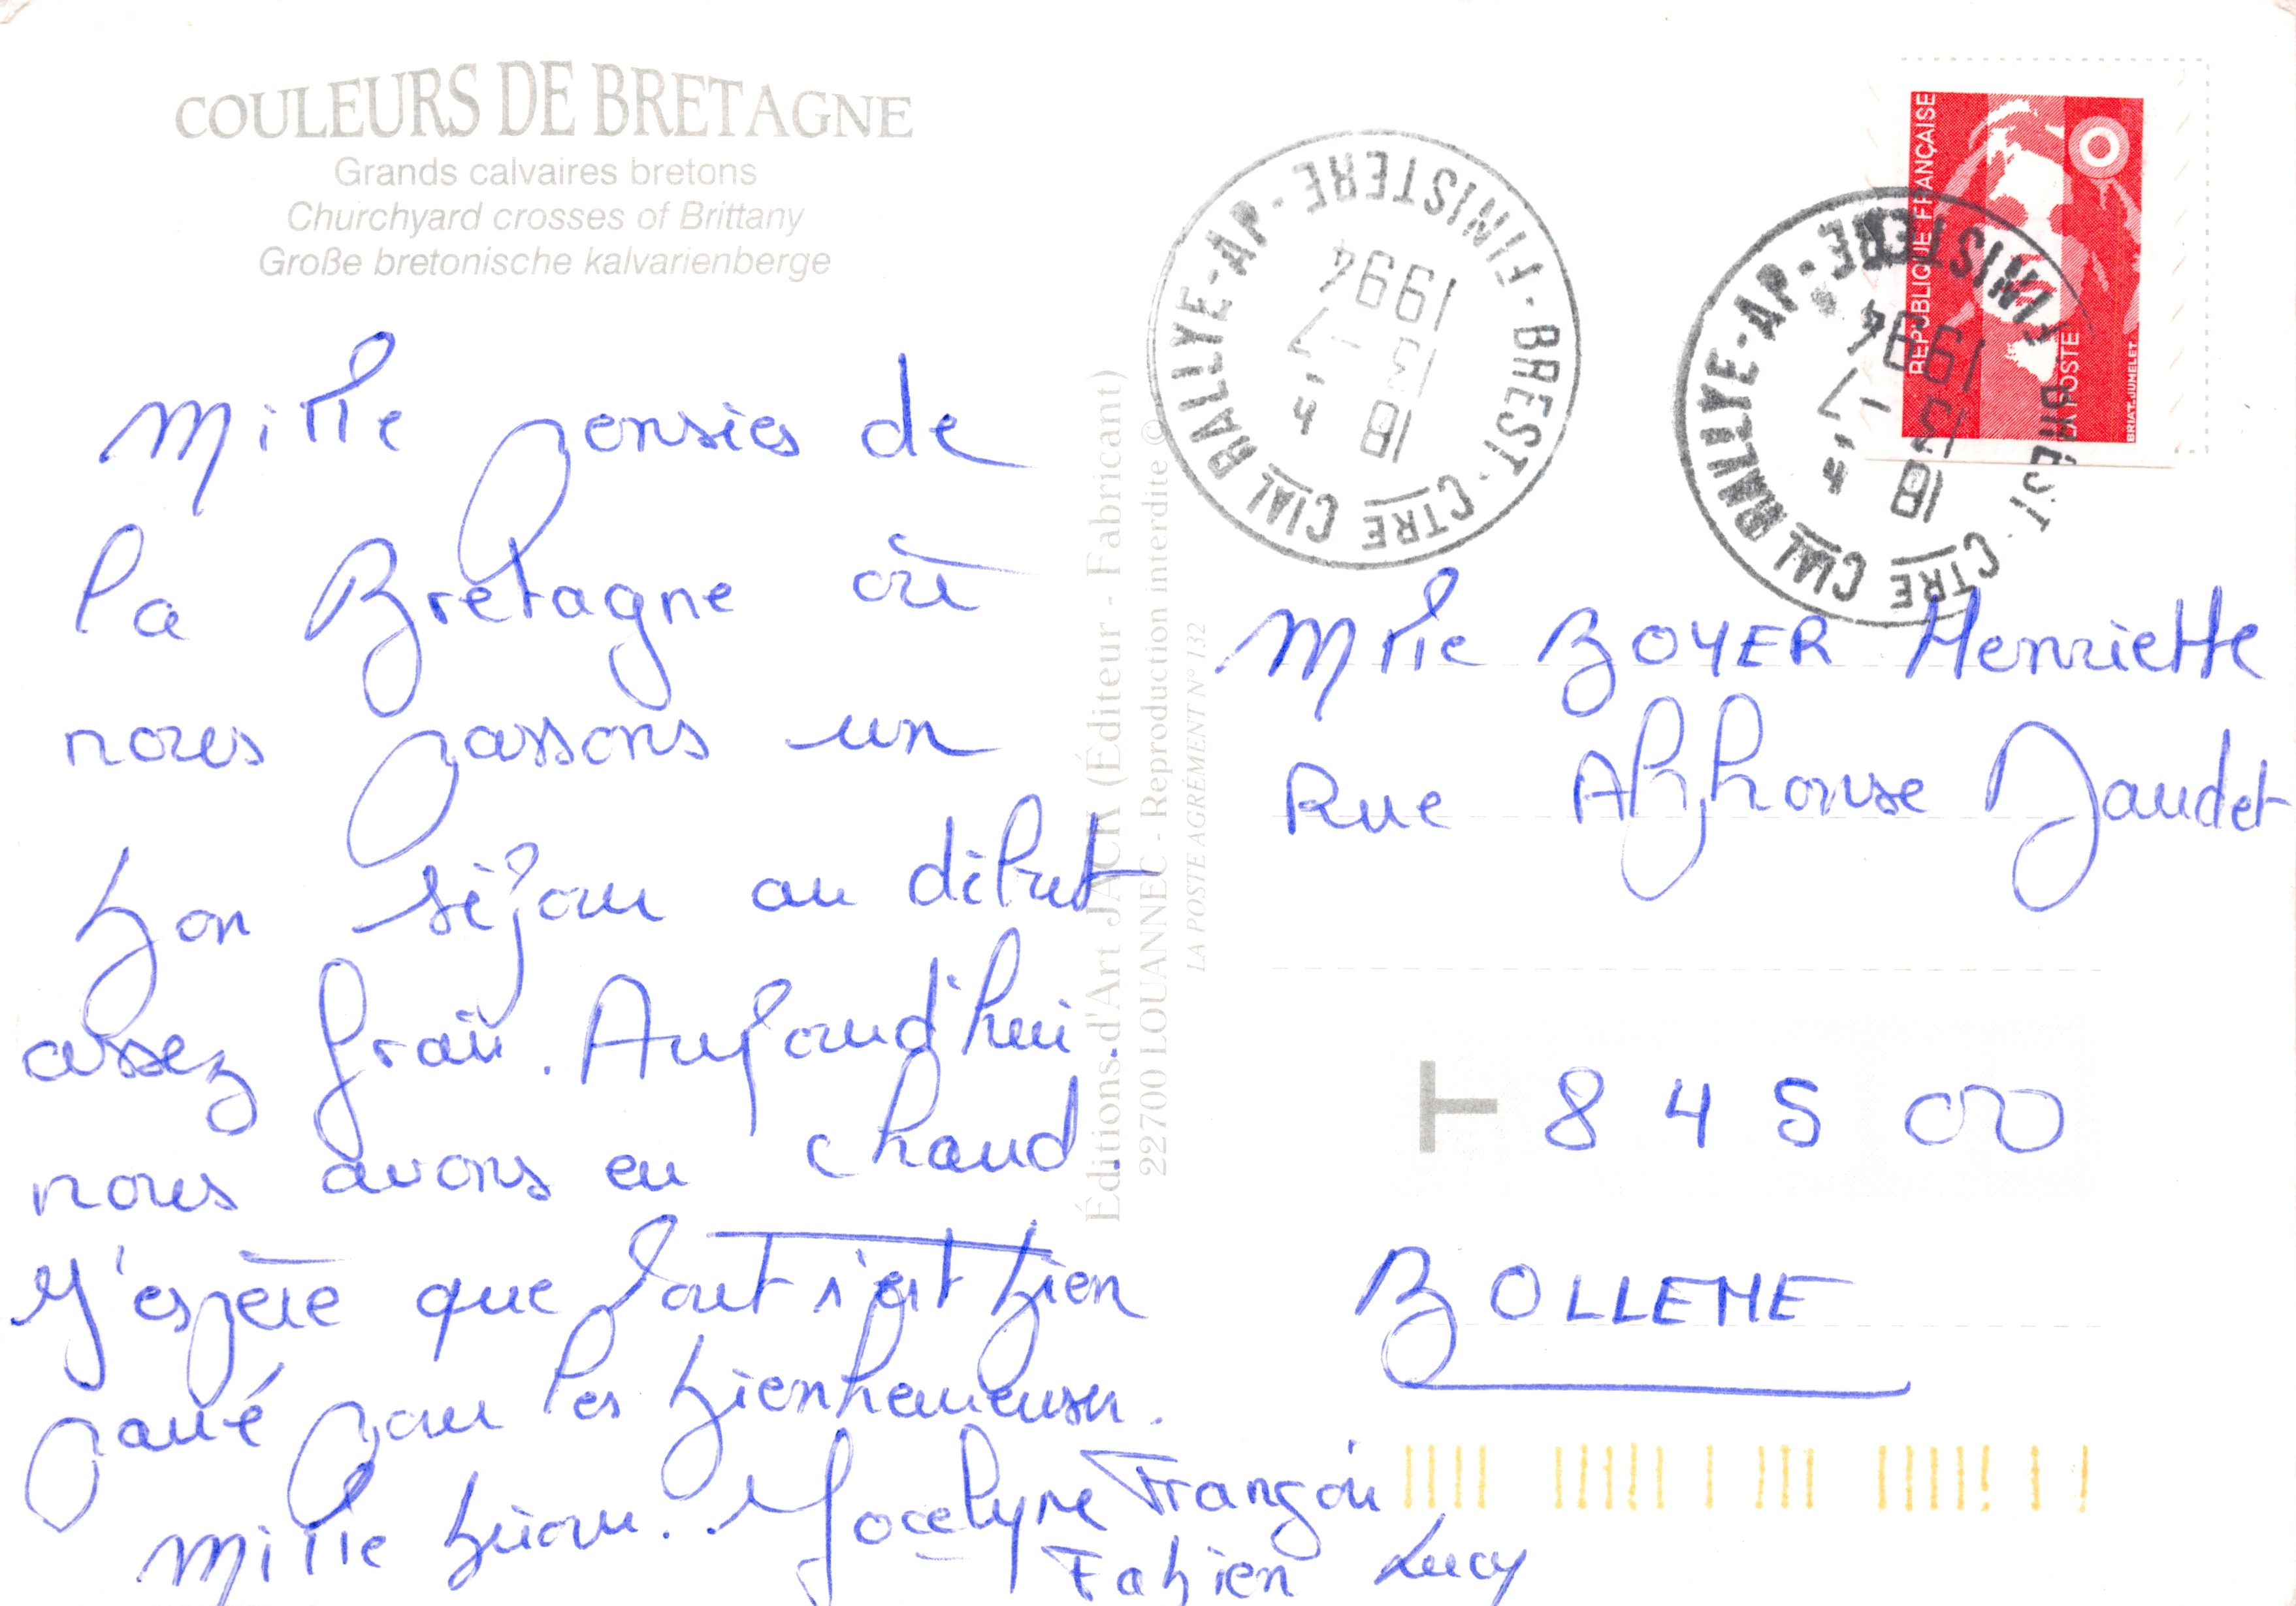 COULEURS DE BRETAGNE
Grands calvaires bretons
Churchyard crosses of Brittany
Große bretonische kalvarienberge
Mille pensées de
la Bretagne où
nous passons un
bon séjour au début
assez frais. Aujourd'hui
nous avons eu chaud.
J'espère que tout s'est bien
passé pour les bienheureuses.
Mille bisous. Jocelyne François
Fabien Lucy
Éditions d'Art JACK (Éditeur - Fabricant)
22700 LOUANNEC - Reproduction interdite ©
LA POSTE AGRÉMENT N° 132
BREST - CTRE CIAL RALLYE-AP - FINISTERE
18 H
15 -7
1994
BREST - CTRE CIAL RALLYE-AP - FINISTERE
18 H
15 -7
1994
REPUBLIQUE FRANÇAISE
LA POSTE
BRIAT-JUMELET
Mlle BOYER Henriette
Rue Alphonse Daudet
84500
BOLLENE